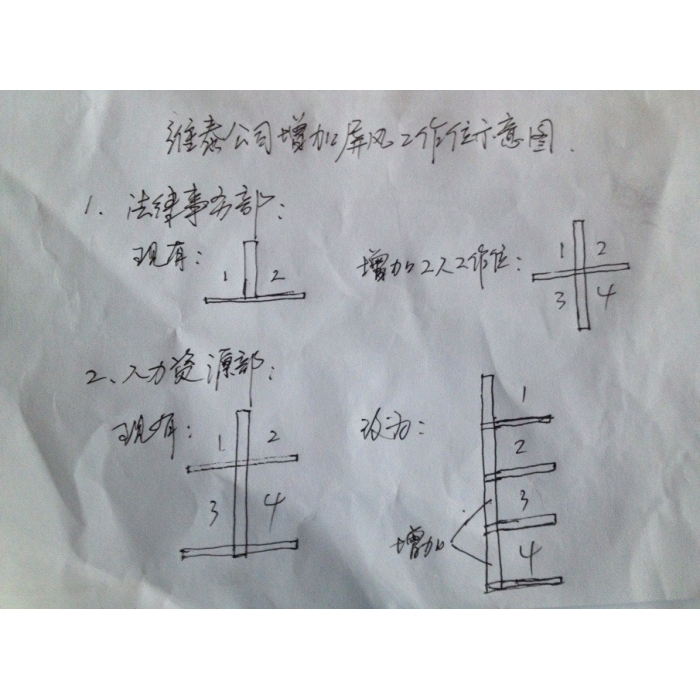 维泰公司增加屏风工作位示意图.
1. 法律事务部:
现有: 1 2
增加2人工作位: 1 2
3 4
2、人力资源部:
现有: 1 2
3 4
改为: 1
2
3
4
增加